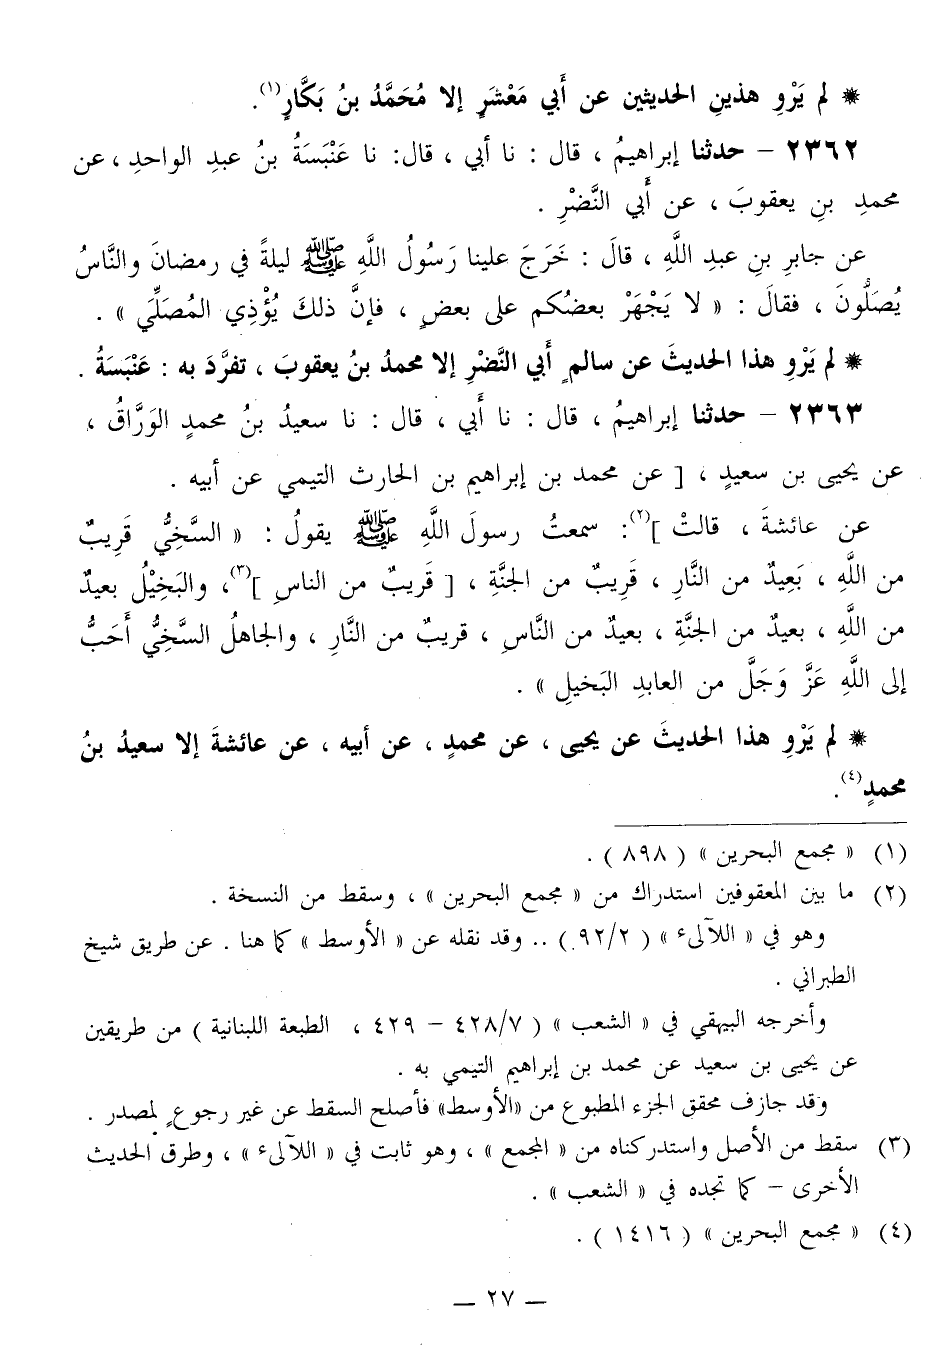 * لم يَرْوِ هذينِ الحديثين عن أَبي مَعْشَرٍ إلا مُحَمَّدُ بنُ بَكَّارٍ(١).
٢٣٦٢ – حدثنا إبراهيمُ ، قال : نا أبي ، قال: نا عَنْبَسَةُ بنُ عبدِ الواحدِ ، عن
محمدِ بنِ يعقوبَ ، عن أَبي النَّضْرِ .
عن جابرِ بنِ عبدِ اللَّهِ ، قالَ : خَرَجَ علينا رَسُولُ اللَّهِ ﷺ ليلةً في رمضانَ والنَّاسُ
يُصَلُّونَ ، فقالَ : « لا يَجْهَرْ بعضُكم على بعضٍ ، فإنَّ ذلكَ يُؤْذِي المُصَلِّيَ » .
* لم يَرْوِ هذا الحديثَ عن سالمٍ أَبي النَّضْرِ إلا محمدُ بنُ يعقوبَ ، تفرَّدَ به : عَنْبَسَةُ .
٢٣٦٣ – حدثنا إبراهيمُ ، قال : نا أَبي ، قال : نا سعيدُ بنُ محمدٍ الوَرَّاقُ ،
عن يحيى بن سعيدٍ ، [ عن محمد بن إبراهيم بن الحارث التيمي عن أبيه .
عن عائشةَ ، قالتْ ](٢): سمعتُ رسولَ اللَّهِ ﷺ يقولُ : « السَّخِيُّ قَرِيبٌ
من اللَّهِ ، بَعِيدٌ من النَّارِ ، قَرِيبٌ من الجَنَّةِ ، [ قَريبٌ من الناسِ ](٣)، والبَخِيْلُ بعيدٌ
من اللَّهِ ، بعيدٌ من الجنَّةِ ، بعيدٌ من النَّاسِ ، قريبٌ من النَّارِ ، والجاهلُ السَّخِيُّ أَحَبُّ
إلى اللَّهِ عَزَّ وَجَلَّ من العابدِ البَخيلِ » .
* لم يَرْوِ هذا الحديثَ عن يحيى ، عن محمدٍ ، عن أبيه ، عن عائشةَ إلا سعيدُ بنُ
محمدٍ(٤).
(١) « مجمع البحرين » ( ٨٩٨ ) .
(٢) ما بين المعقوفين استدراك من « مجمع البحرين » ، وسقط من النسخة .
وهو في « اللآلىء » ( ٩٢/٢ ) .. وقد نقله عن « الأوسط » كما هنا . عن طريق شيخ
الطبراني .
وأخرجه البيهقي في « الشعب » ( ٤٢٨/٧ – ٤٢٩ ، الطبعة اللبنانية ) من طريقين
عن يحيى بن سعيد عن محمد بن إبراهيم التيمي به .
وقد جازف محقق الجزء المطبوع من «الأوسط» فأصلح السقط عن غير رجوعٍ لمصدر .
(٣) سقط من الأصل واستدركناه من « المجمع » ، وهو ثابت في « اللآلىء » ، وطرق الحديث
الأخرى – كما تجده في « الشعب » .
(٤) « مجمع البحرين » ( ١٤١٦ ) .
— ٢٧ —